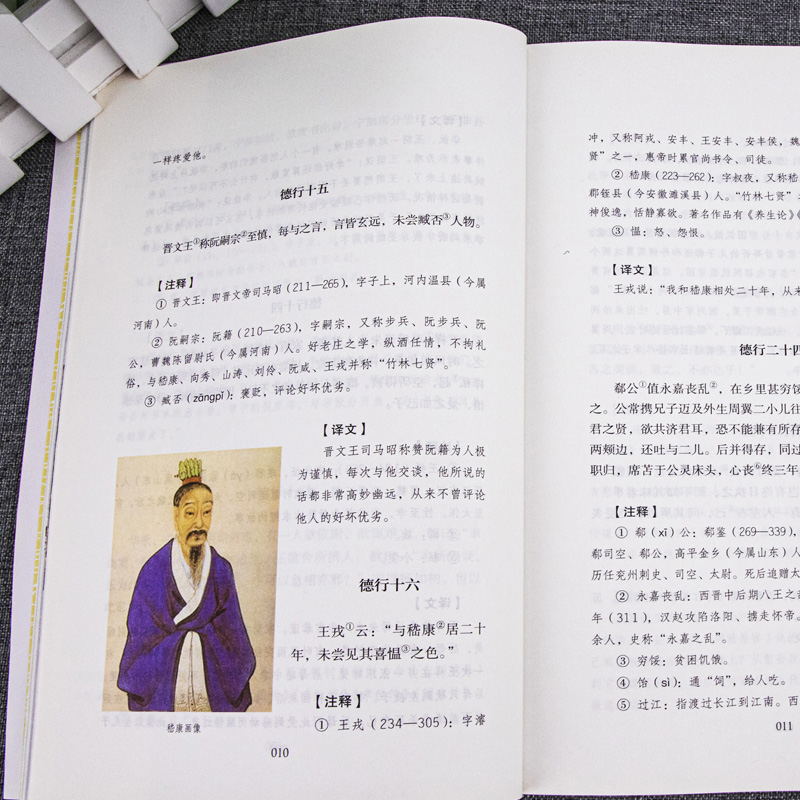 一样疼爱他。
德行十五
晋文王①称阮嗣宗②至慎，每与之言，言皆玄远，未尝臧否③人物。
【注释】
① 晋文王：即晋文帝司马昭（211—265），字子上，河内温县（今属
河南）人。
② 阮嗣宗：阮籍（210—263），字嗣宗，又称步兵、阮步兵、阮
公，曹魏陈留尉氏（今属河南）人。好老庄之学，纵酒任情，不拘礼
俗，与嵇康、向秀、山涛、刘伶、阮咸、王戎并称“竹林七贤”。
③ 臧否（zāngpǐ）：褒贬，评论好坏优劣。
【译文】
晋文王司马昭称赞阮籍为人极
为谨慎，每次与他交谈，他所说的
话都非常高妙幽远，从来不曾评论
他人的好坏优劣。
德行十六
王戎①云：“与嵇康②居二十
年，未尝见其喜愠③之色。”
【注释】
① 王戎（234—305）：字濬
嵇康画像
010
冲，又称阿戎、安丰、王安丰、安丰侯，魏
贤”之一，惠帝时累官尚书令、司徒。
② 嵇康（223—262）：字叔夜，又称嵇
郡铚县（今安徽濉溪县）人。“竹林七贤”
神俊逸，恬静寡欲。著名作品有《养生论》《
③ 愠：怒、怨恨。
【译文】
王戎说：“我和嵇康相处二十年，从未
德行二十四
郗公①值永嘉丧乱②，在乡里甚穷馁
之。公常携兄子迈及外生周翼二小儿往
君之贤，欲共济君耳，恐不能兼有所存
两颊边，还吐与二儿。后并得存，同过
职归，席苫于公灵床头，心丧⑥终三年
【注释】
① 郗（xī）公：郗鉴（269—339），
郗司空、郗公，高平金乡（今属山东）人
历任兖州刺史、司空、太尉。死后追赠太
② 永嘉丧乱：西晋中后期八王之
年（311），汉赵攻陷洛阳、掳走怀帝。
余人，史称“永嘉之乱”。
③ 穷馁：贫困饥饿。
④ 饴（sì）：通“饲”，给人吃。
⑤ 过江：指渡过长江到江南。西
011